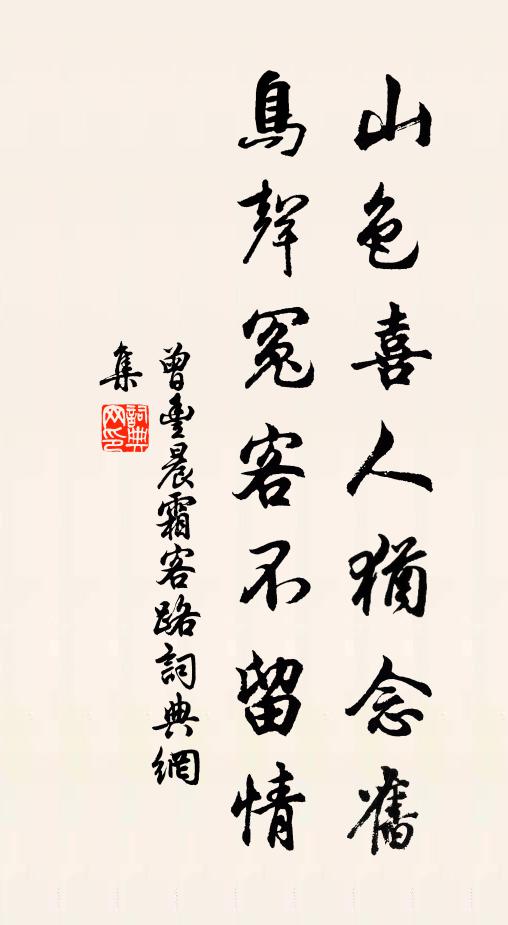 山色喜人猶念舊
鳥聲冤客不留情
曾豐晨霜客路詞典網
集
詞典
网印